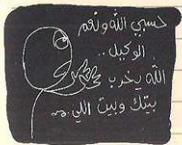 حسبي الله ونعم
الوكيل..
الله يخرب
بيتك وبيت اللي..